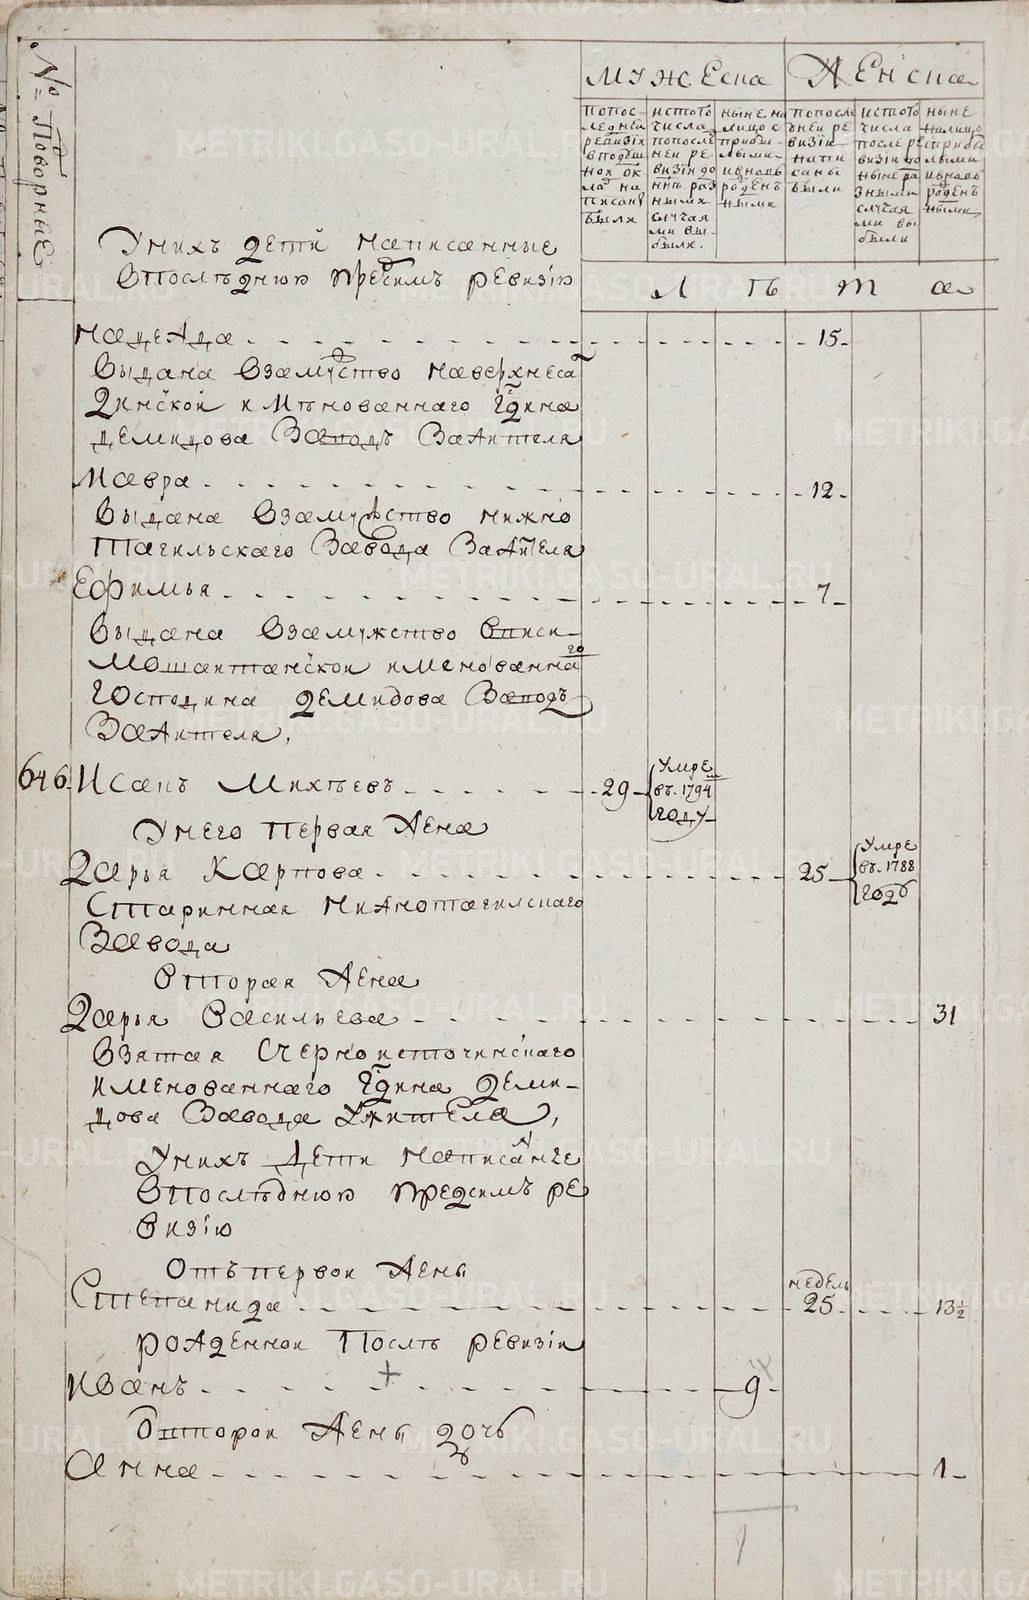 № Подворные
Мужеска
Женска
попос-
ледней
ревизiи
в подуш
ной ок
лад на
писаны
были
истого
числа
попосле
ней ре
визiи до
ныне раз
ными
случая
ми вы-
были.
ныне на
лицо с
прибы-
лыми
и вновь
рожден
ными
попосле
дней ре
визiи
напи
саны
были
истого
числа
после ре
визiи до
ныне ра
зными
случая
ми вы
были
ныне
налицо
с прибы
лыми
и вновь
рожден
ными
Лѣта
Унихъ дети написанные
впослѣднюю предсимъ ревизiю
Надежда 15
выдана взамужство наверхнеса
лдинской имѣнованнаго Гдина
демидова Заводъ Зажителя
Мавра 12
выдана взамужство нижно
тагильскаго Завода Зажителя
Ефимья 7
выдана взамужство висси-
мошаитанской именованнаго
Господина демидова Заводъ
Зажителя,
646 Исакъ Михѣевъ 29 умре въ 1794 году
Унего первая Жена
Дарья Карпова 25 умре въ 1788 годъ
Старинная нижнотагилскаго
Завода
Вторая Жена
Дарья Васильева 31
взятая Счерноисточинскаго
именованнаго Гдина деми-
дова Завода Ужителя,
Унихъ дети написанне
впослѣднюю предсимъ ре
визiю
Отъ первой Жены
Степанида недель 25 13½
рожденной Послѣ ревизiи
Иванъ + 9
Второй Жены дочь
Анна 1
1
METRIKI.GASO-URAL.RU